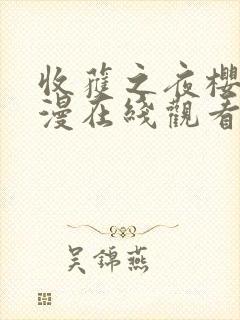 收穫之夜櫻
漫在綫觀看
吳錦燕